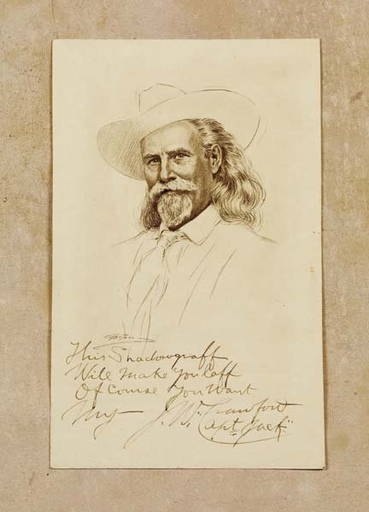 This Shadowgraff
Will Make You Laff
Of Course You Want
My J. W. Crawford
Capt Jack"